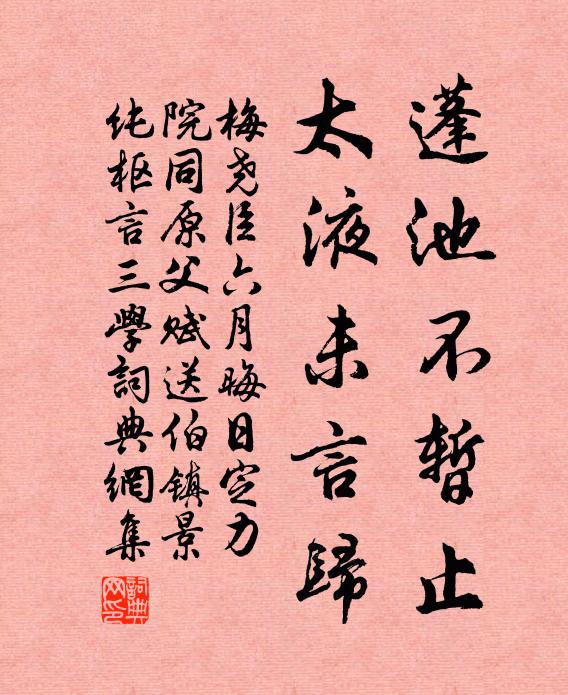 蓬池不暫止
太液未言歸
梅尧臣六月晦日定力
院同原父赋送伯鎮景
纯枢言三學詞典網集
詞典
网印